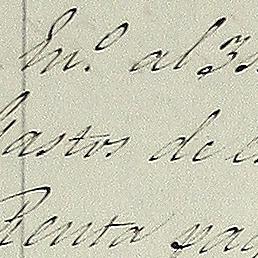 En.º al 3
Gastos de
Renta